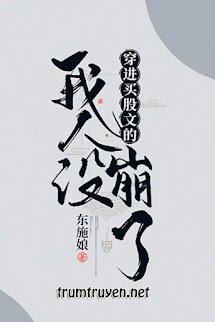 穿进买股文的
我人设
崩了
东施娘 著
trumtruyen.net